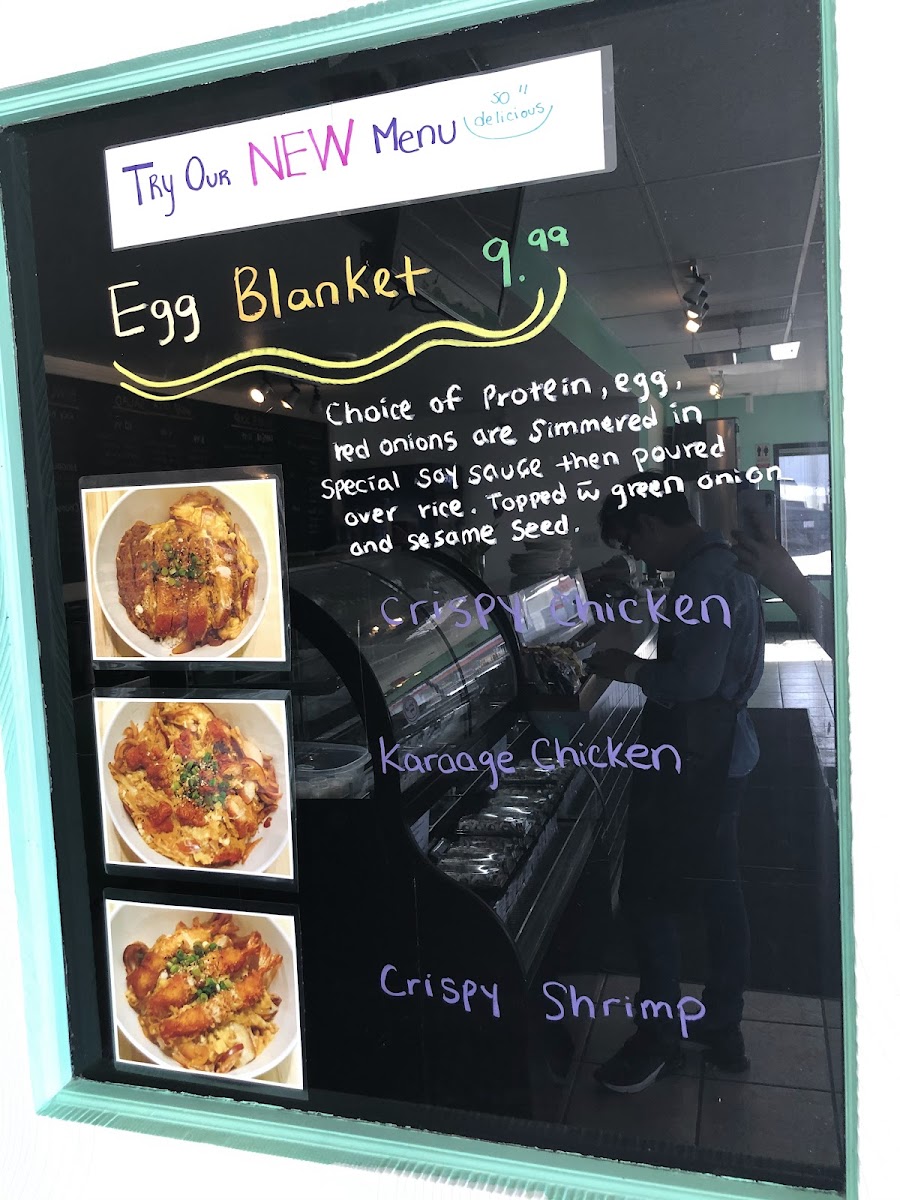 Try Our NEW Menu
so
delicious
Egg Blanket 9.99
Choice of Protein, egg,
red onions are simmered in
special soy sauce then poured
over rice. Topped w̄ green onion
and sesame seed.
Crispy Chicken
Karaage Chicken
Crispy Shrimp